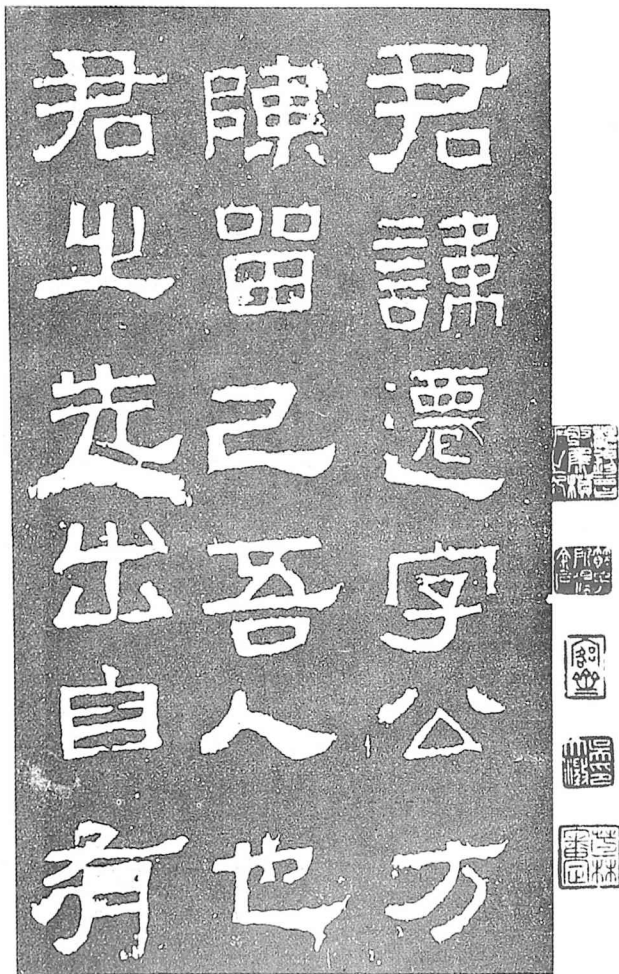 君諱遷字公方
陳留己吾人也
君之先出自有
吳印大澂